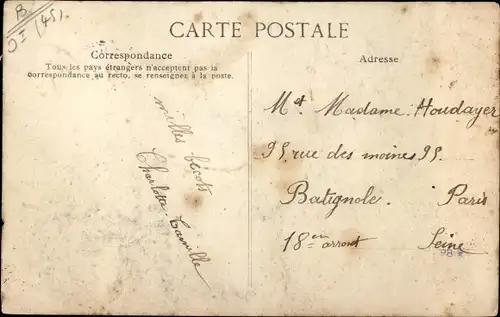 B.
OI (45).
CARTE POSTALE
Correspondance
Tous les pays étrangers n'acceptent pas la
correspondance au recto, se renseigner à la poste.
milles bécots
Charlotte Camille
Adresse
Mt Madame Houdayer
95 rue des moines 95.
Batignole. Paris
18em arront Seine